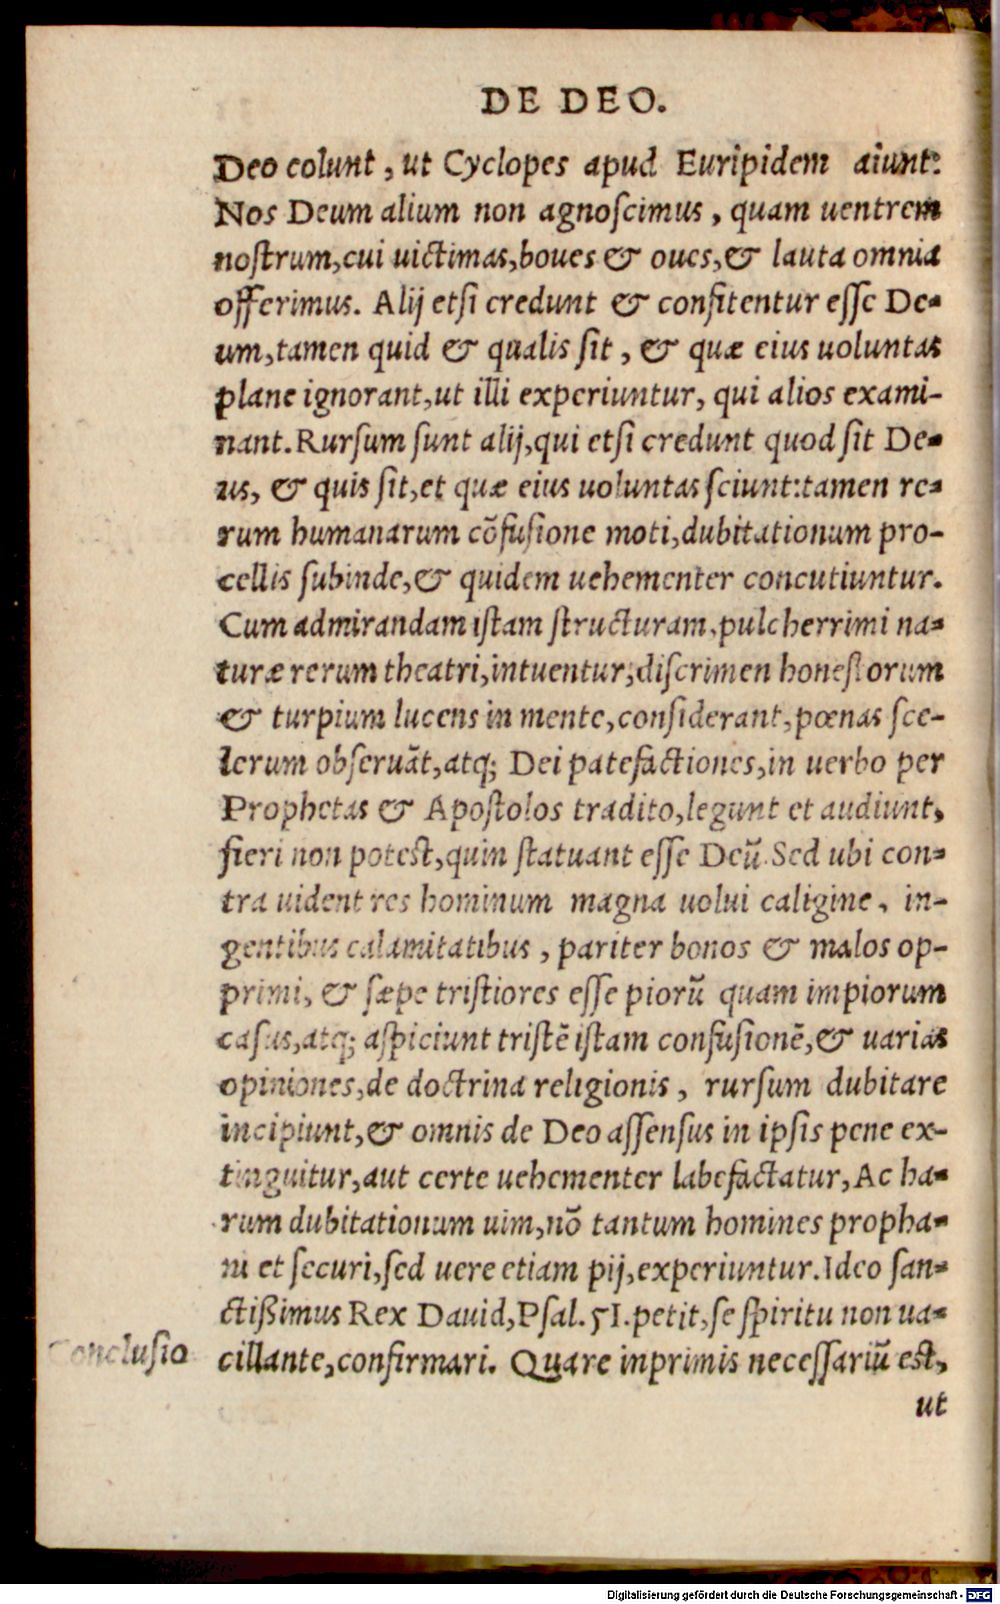 DE DEO.
Deo colunt, ut Cyclopes apud Euripidem aiunt:
Nos Deum alium non agnoscimus, quam uentrem
nostrum, cui uictimas, boues & oues, & lauta omnia
offerimus. Alij etsi credunt & confitentur esse De-
um, tamen quid & qualis sit, & quæ eius uoluntas
plane ignorant, ut illi experiuntur, qui alios exami-
nant. Rursum sunt alij, qui etsi credunt quod sit De-
us, & quis sit, et quæ eius uoluntas sciunt: tamen re-
rum humanarum cõfusione moti, dubitationum pro-
cellis subinde, & quidem uehementer concutiuntur.
Cum admirandam istam structuram, pulcherrimi na-
turæ rerum theatri, intuentur, discrimen honestorum
& turpium lucens in mente, considerant, pœnas sce-
lerum obseruãt, atq; Dei patefactiones, in uerbo per
Prophetas & Apostolos tradito, legunt et audiunt,
fieri non potest, quin statuant esse Deũ. Sed ubi con-
tra uident res hominum magna uolui caligine, in-
gentibus calamitatibus, pariter bonos & malos op-
primi, & sæpe tristiores esse piorũ quam impiorum
casus, atq; aspiciunt tristẽ istam confusionẽ, & uarias
opiniones, de doctrina religionis, rursum dubitare
incipiunt, & omnis de Deo assensus in ipsis pene ex-
tinguitur, aut certe uehementer labefactatur, Ac ha-
rum dubitationum uim, nõ tantum homines propha-
ni et securi, sed uere etiam pij, experiuntur. Ideo san-
ctißimus Rex Dauid, Psal. 51. petit, se spiritu non ua-
Conclusio cillante, confirmari. Quare inprimis necessariũ est,
ut
Digitalisierung gefördert durch die Deutsche Forschungsgemeinschaft - DFG